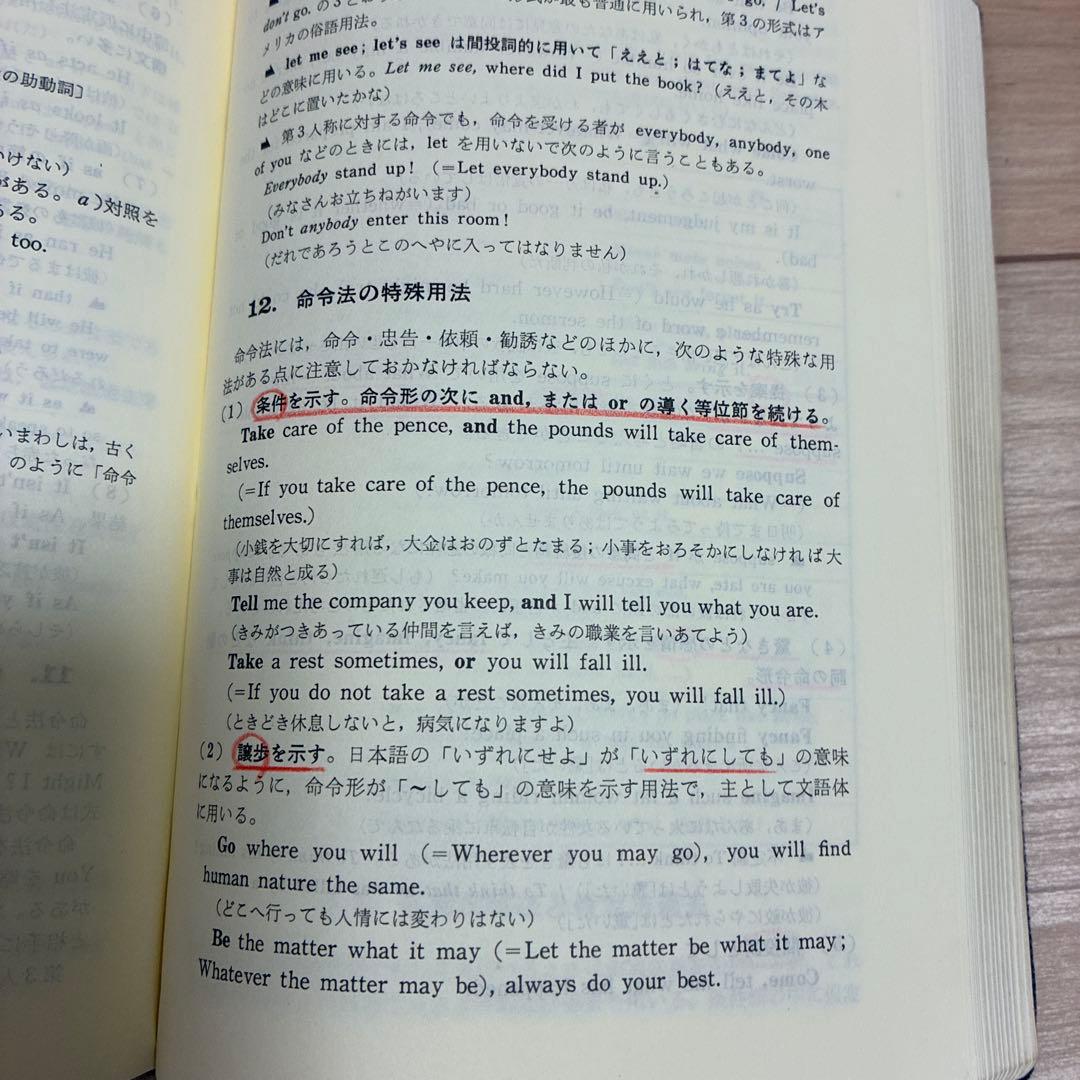 の助動詞〕
かけない)
がある。a)対照を
ある。
too.
いまわしは，古く
のように「命令
go. / Let's
don't go. の3と
が最も普通に用いられ，第3の形式はア
メリカの俗語用法。
▲ let me see; let's see は間投詞的に用いて「ええと；はてな；まてよ」な
どの意味に用いる。Let me see, where did I put the book? (ええと，その本
はどこに置いたかな)
▲ 第3人称に対する命令でも，命令を受ける者が everybody, anybody, one
of you などのときには，let を用いないで次のように言うこともある。
Everybody stand up! (=Let everybody stand up.)
(みなさんお立ちねがいます)
Don't anybody enter this room!
(だれであろうとこのへやに入ってはなりません)
12. 命令法の特殊用法
命令法には，命令・忠告・依頼・勧誘などのほかに，次のような特殊な用
法がある点に注意しておかなければならない。
(1) 条件を示す。命令形の次に and, または or の導く等位節を続ける。
Take care of the pence, and the pounds will take care of them-
selves.
(=If you take care of the pence, the pounds will take care of
themselves.)
(小銭を大切にすれば，大金はおのずとたまる；小事をおろそかにしなければ大
事は自然と成る)
Tell me the company you keep, and I will tell you what you are.
(きみがつきあっている仲間を言えば，きみの職業を言いあてよう)
Take a rest sometimes, or you will fall ill.
(=If you do not take a rest sometimes, you will fall ill.)
(ときどき休息しないと，病気になりますよ)
(2) 譲歩を示す。日本語の「いずれにせよ」が「いずれにしても」の意味
になるように，命令形が「〜しても」の意味を示す用法で，主として文語体
に用いる。
Go where you will (=Wherever you may go), you will find
human nature the same.
(どこへ行っても人情には変わりはない)
Be the matter what it may (=Let the matter be what it may;
Whatever the matter may be), always do your best.